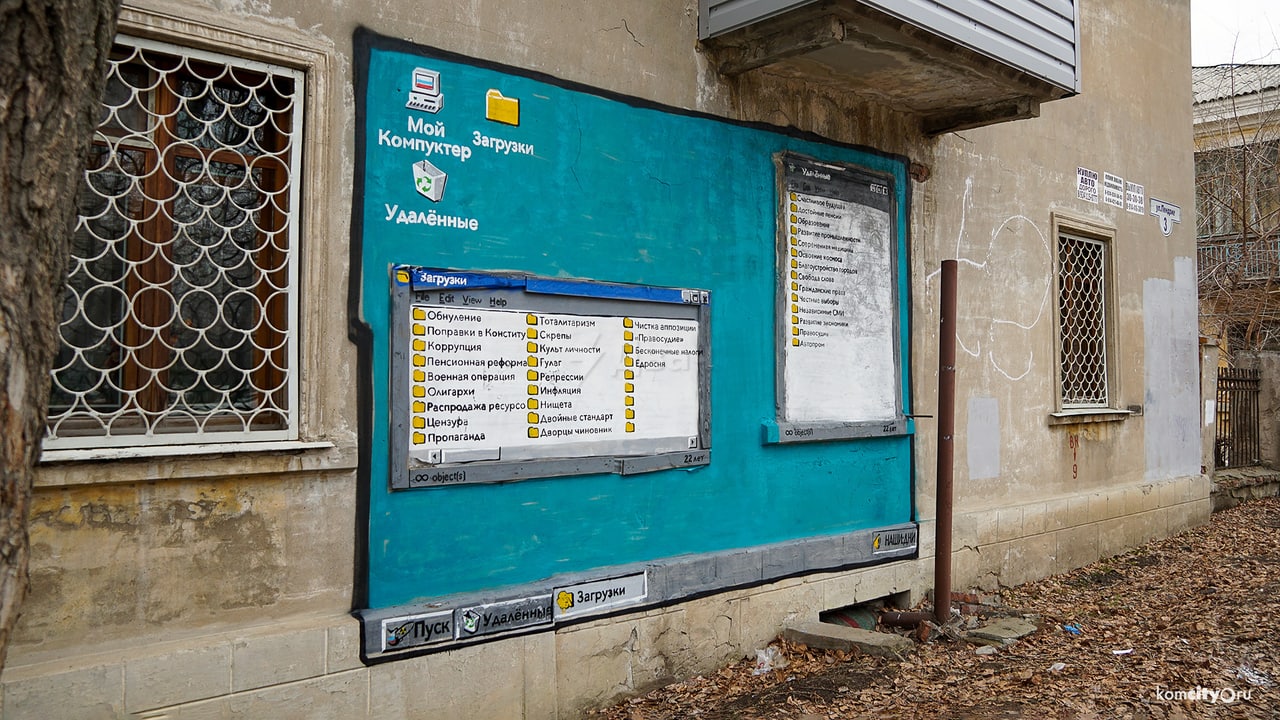 Мой
Компуктер
Загрузки
Удалённые
Загрузки
File Edit View Help
Обнуление
Поправки в Конститу
Коррупция
Пенсионная реформа
Военная операция
Олигархи
Распродажа ресурсо
Цензура
Пропаганда
Тоталитаризм
Скрепы
Культ личности
Гулаг
Репрессии
Инфляция
Нищета
Двойные стандарт
Дворцы чиновник
Чистка аппозиции
«Правосудие»
Бесконечные налоги
Едросня
∞ object(s)
22 лет
Удалённые
File View
Счастливое будущее
Достойные пенсии
Образование
Развитие промышленности
Современная медицина
Освоение космоса
Благоустройство городов
Свобода слова
Гражданские права
Честные выборы
Независимые СМИ
Развитие экономики
Правосудие
Автопром
∞ object(s)
22 лет
Пуск
Удалённые
Загрузки
НАШИ ДНИ
КУПЛЮ
АВТО
ДОРОГО
ВЫКУП АВТО
38-38-38
ул.Пендрие
3
komcity.ru